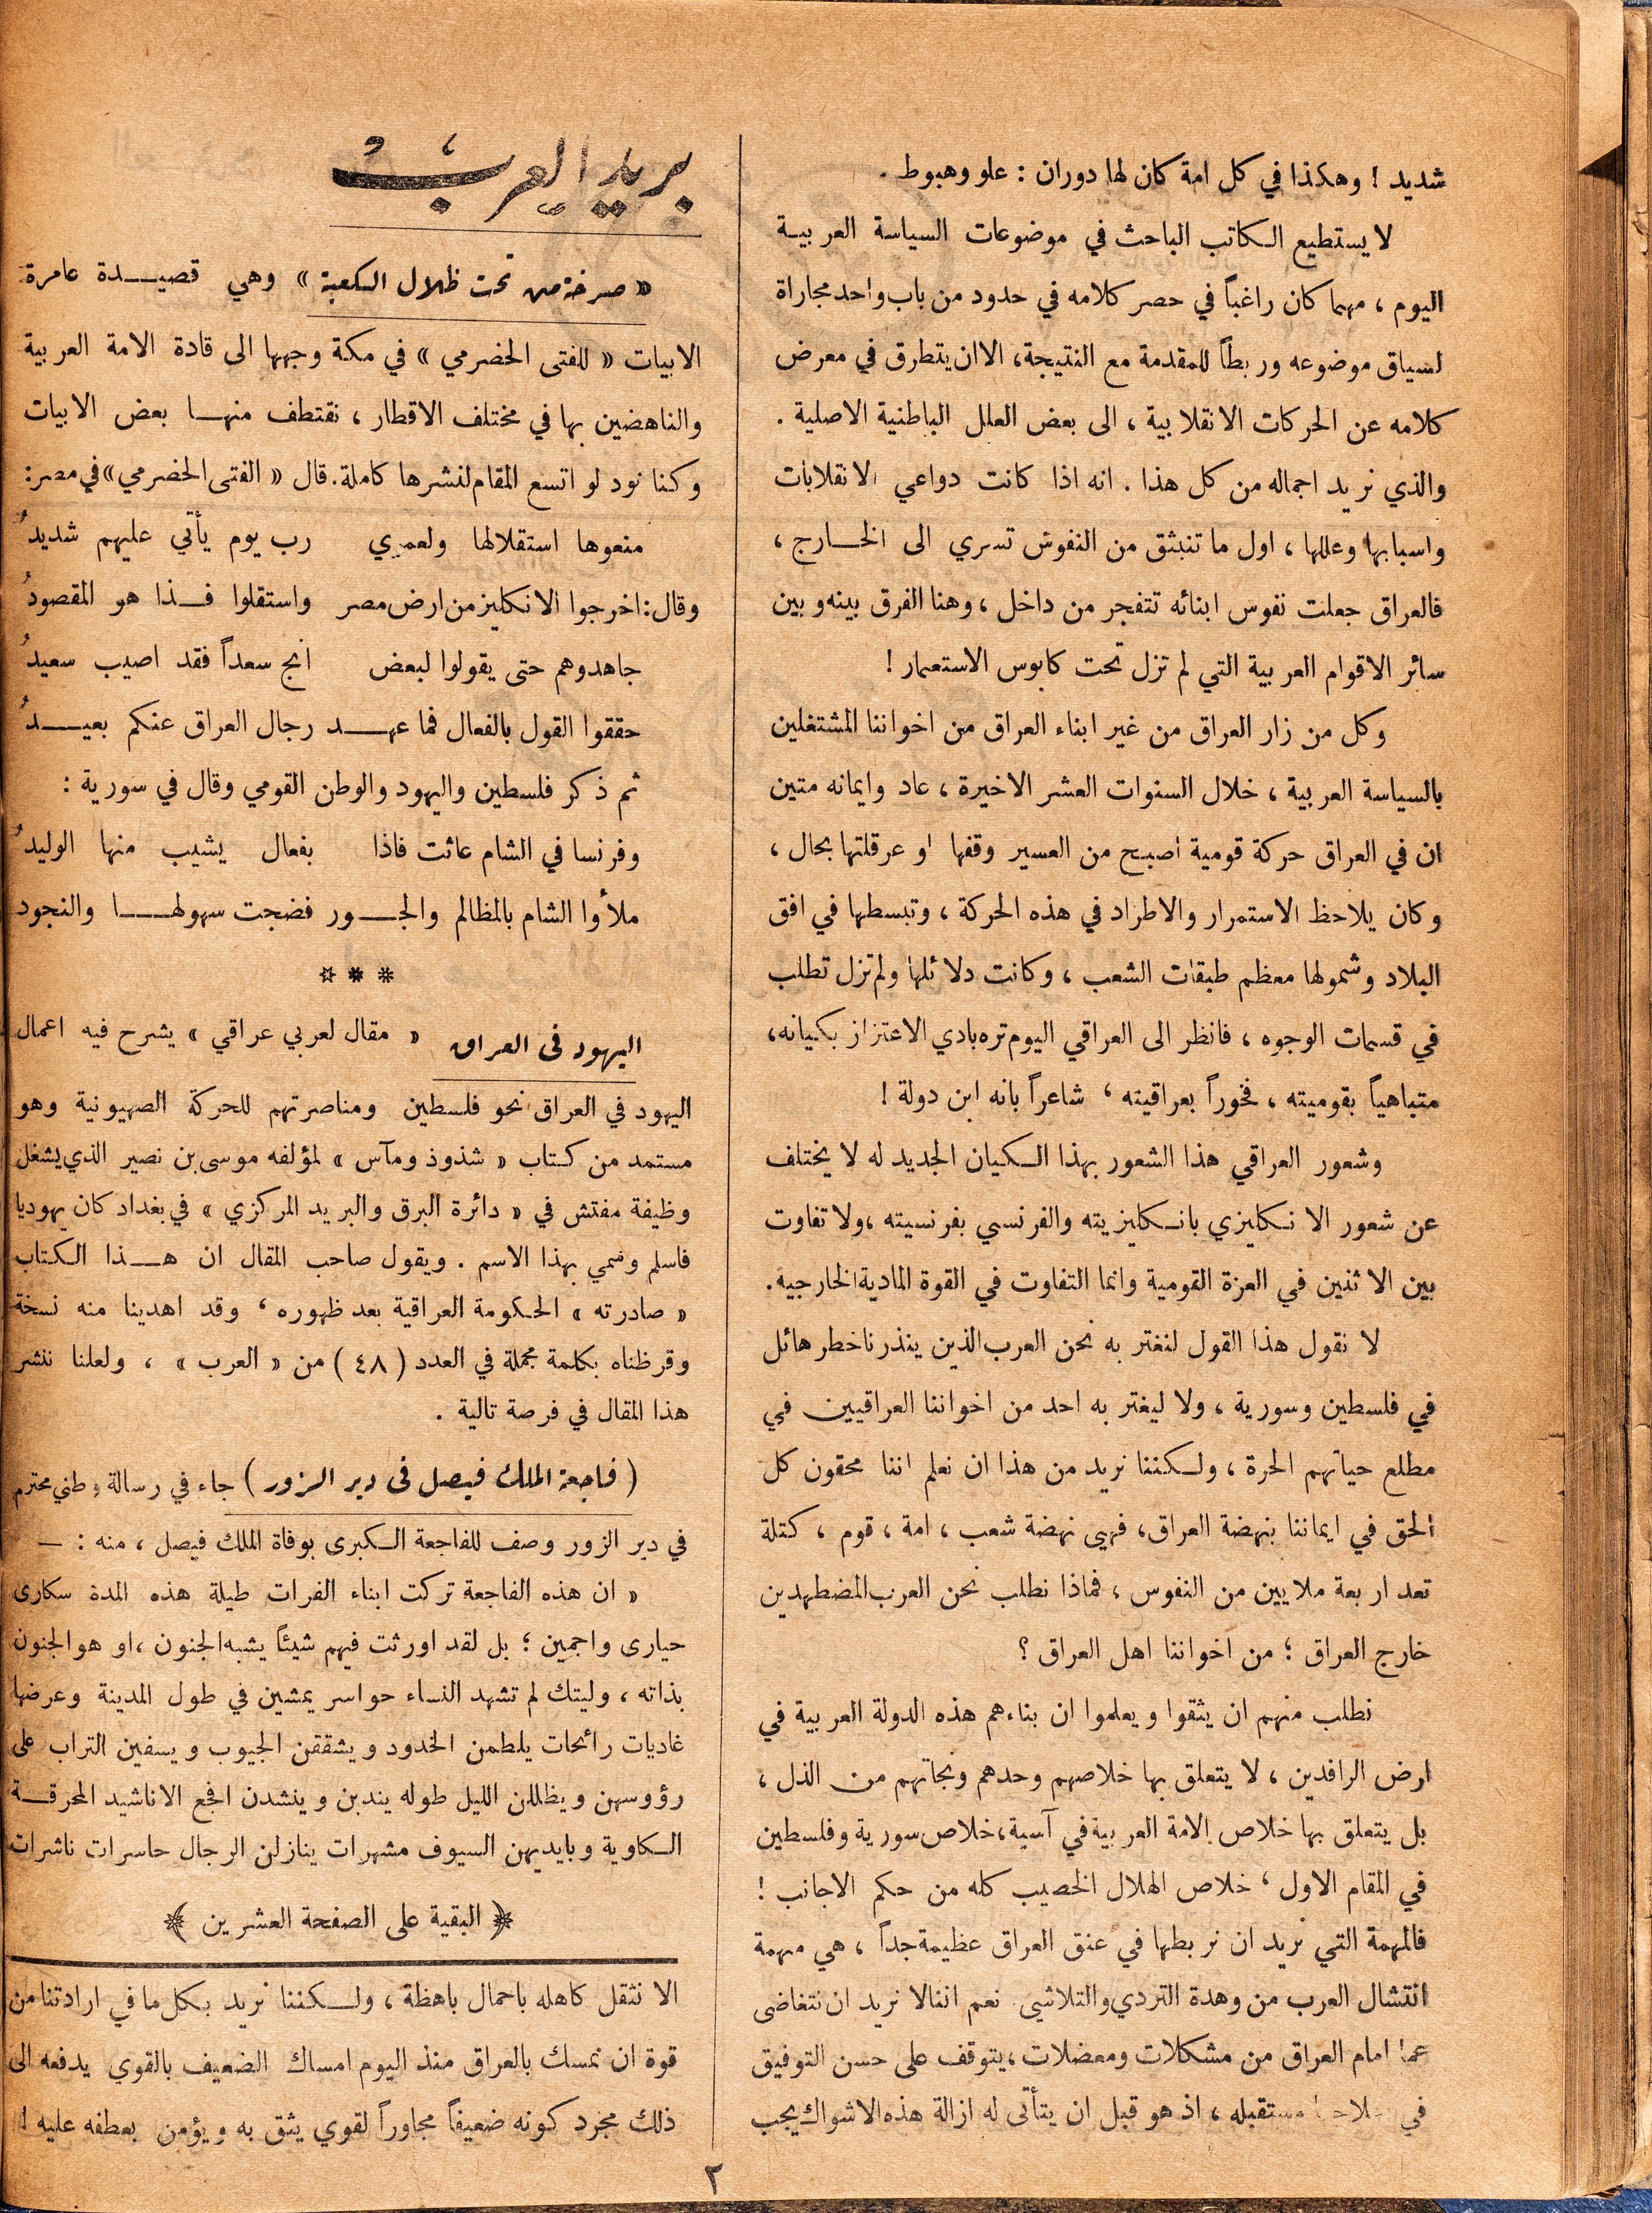 شديد ! وهكذا في كل امة كان لها دوران : علو وهبوط .
لا يستطيع الكاتب الباحث في موضوعات السياسة العربية
اليوم ، مهما كان راغباً في حصر كلامه في حدود من باب واحد مجاراة
لسياق موضوعه وربطاً للمقدمة مع النتيجة، الا ان يتطرق في معرض
كلامه عن الحركات الانقلابية ، الى بعض العلل الباطنية الاصلية .
والذي نريد اجماله من كل هذا . انه اذا كانت دواعي الانقلابات
واسبابها وعللها ، اول ما تنبثق من النفوس تسري الى الخارج ،
فالعراق جعلت نفوس ابنائه تتفجر من داخل ، وهنا الفرق بينه وبين
سائر الاقوام العربية التي لم تزل تحت كابوس الاستعمار !
وكل من زار العراق من غير ابناء العراق من اخواننا المشتغلين
بالسياسة العربية ، خلال السنوات العشر الاخيرة ، عاد وايمانه متين
ان في العراق حركة قومية اصبح من العسير وقفها او عرقلتها بحال ،
وكان يلاحظ الاستمرار والاطراد في هذه الحركة ، وتبسطها في افق
البلاد وشمولها معظم طبقات الشعب ، وكانت دلائلها ولم تزل تطلب
في قسمات الوجوه ، فانظر الى العراقي اليوم تره بادي الاعتزاز بكيانه،
متباهياً بقوميته ، فخوراً بعراقيته ، شاعراً بانه ابن دولة !
وشعور العراقي هذا الشعور بهذا الكيان الجديد له لا يختلف
عن شعور الانكليزي بانكليزيته والفرنسي بفرنسيته ،ولا تفاوت
بين الاثنين في العزة القومية وانما التفاوت في القوة المادية الخارجيه.
لا نقول هذا القول لنغتر به نحن العرب الذين ينذرنا خطر هائل
في فلسطين وسورية ، ولا ليغتر به احد من اخواننا العراقيين في
مطلع حياتهم الحرة ، ولكننا نريد من هذا ان نعلم اننا محقون كل
الحق في ايماننا بنهضة العراق، فهي نهضة شعب ، امة ، قوم ، كتلة
تعد اربعة ملايين من النفوس ، فماذا نطلب نحن العرب المضطهدين
خارج العراق ؛ من اخواننا اهل العراق ؟
نطلب منهم ان يثقوا ويعلموا ان بناءهم هذه الدولة العربية في
ارض الرافدين ، لا يتعلق بها خلاصهم وحدهم ونجاتهم من الذل ،
بل يتعلق بها خلاص الامة العربية في آسية، خلاص سورية وفلسطين
في المقام الاول ، خلاص الهلال الخصيب كله من حكم الاجانب !
فالمهمة التي نريد ان نربطها في عنق العراق عظيمة جداً ، هي مهمة
انتشال العرب من وهدة التردي والتلاشي. نعم اننا لا نريد ان نتغاضى
عما امام العراق من مشكلات ومعضلات ، يتوقف على حسن التوفيق
في مستقبله ، اذ هو قبل ان يتأتى له ازالة هذه الاشواك يجب
بريد العرب
« صرخة من تحت ظلال الكعبة » وهي قصيدة عامرة
الابيات « للفتى الحضرمي » في مكة وجهها الى قادة الامة العربية
والناهضين بها في مختلف الاقطار ، نقتطف منها بعض الابيات
وكنا نود لو اتسع المقام لنشرها كاملة. قال « الفتى الحضرمي » في مصر:
منعوها استقلالها ولعمري رب يوم يأتي عليهم شديدُ
وقال : اخرجوا الانكليز من ارض مصر واستقلوا فذا هو المقصودُ
جاهدوهم حتى يقولوا لبعض انج سعداً فقد اصيب سعيدُ
حققوا القول بالفعال فما عهد رجال العراق عنكم بعيدُ
ثم ذكر فلسطين واليهود والوطن القومي وقال في سورية :
وفرنسا في الشام عاثت فاذا بفعال يشيب منها الوليدُ
ملأوا الشام بالمظالم والجور فضجت سهولها والنجود
* * *
اليهود في العراق « مقال لعربي عراقي » يشرح فيه اعمال
اليهود في العراق نحو فلسطين ومناصرتهم للحركة الصهيونية وهو
مستمد من كتاب « شذوذ ومآس » لمؤلفه موسى بن نصير الذي يشغل
وظيفة مفتش في « دائرة البرق والبريد المركزي » في بغداد كان يهوديا
فاسلم وسمي بهذا الاسم . ويقول صاحب المقال ان هذا الكتاب
« صادرته » الحكومة العراقية بعد ظهوره ، وقد اهدينا منه نسخة
وقرظناه بكلمة مجملة في العدد ( ٤٨ ) من « العرب » ، ولعلنا ننشر
هذا المقال في فرصة تالية .
( فاجعة الملك فيصل في دير الزور ) جاء في رسالة وطني محترم
في دير الزور وصف للفاجعة الكبرى بوفاة الملك فيصل ، منه : —
« ان هذه الفاجعة تركت ابناء الفرات طيلة هذه المدة سكارى
حيارى واجمين ؛ بل لقد اورثت فيهم شيئاً يشبه الجنون ،او هو الجنون
بذاته ، وليتك لم تشهد النساء حواسر يمشين في طول المدينة وعرضها
غاديات رائحات يلطمن الخدود ويشققن الجيوب ويسفين التراب على
رؤوسهن ويظللن الليل طوله يندبن وينشدن افجع الاناشيد المحرقة
الكاوية وبايديهن السيوف مشهرات ينازلن الرجال حاسرات ناشرات
﴿ البقية على الصفحة العشرين ﴾
الا نثقل كاهله باحمال باهظة ، ولكننا نريد بكل ما في ارادتنا من
قوة ان نمسك بالعراق منذ اليوم امساك الضعيف بالقوي يدفعه الى
ذلك مجرد كونه ضعيفاً مجاوراً لقوي يثق به ويؤمن بعطفه عليه !
٢